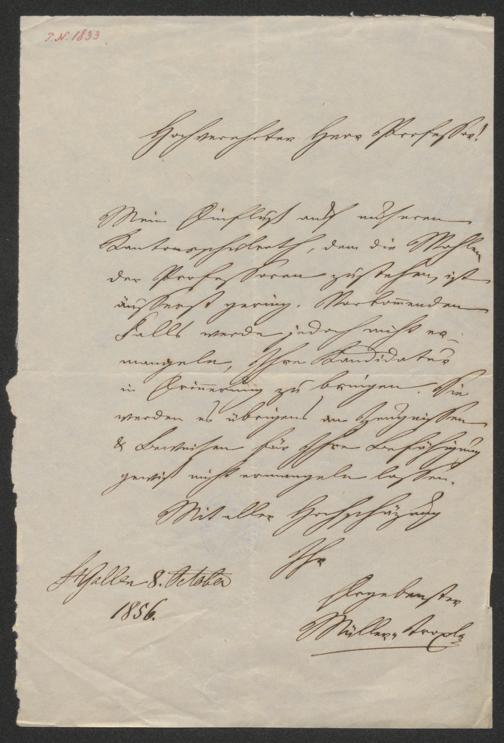 J.N. 1833
Hochverehrter Herr Professor!
Mein Einfluß auf unseren
Kantonsschulrath, dem die Wahlen
der Professoren zustehen, ist
äusserst gering. Vorkommenden
Falls werde jedoch nicht er-
mangeln, Ihre Kandidatur
in Erinnerung zu bringen. Sie
werden es übrigens an Zeugnissen
& Beweisen für Ihre Befähigung
gewiß nicht ermangeln lassen.
Mit aller Hochschäzung
Ihr
Ergebenster
St Gallen 8. October
1856.
Müller,